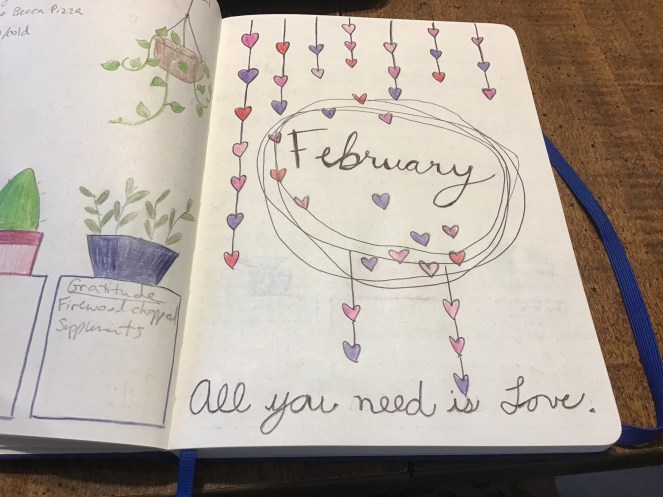 Pizza
Gratitude
Firewood chopped
Supplements
February
All you need is Love.